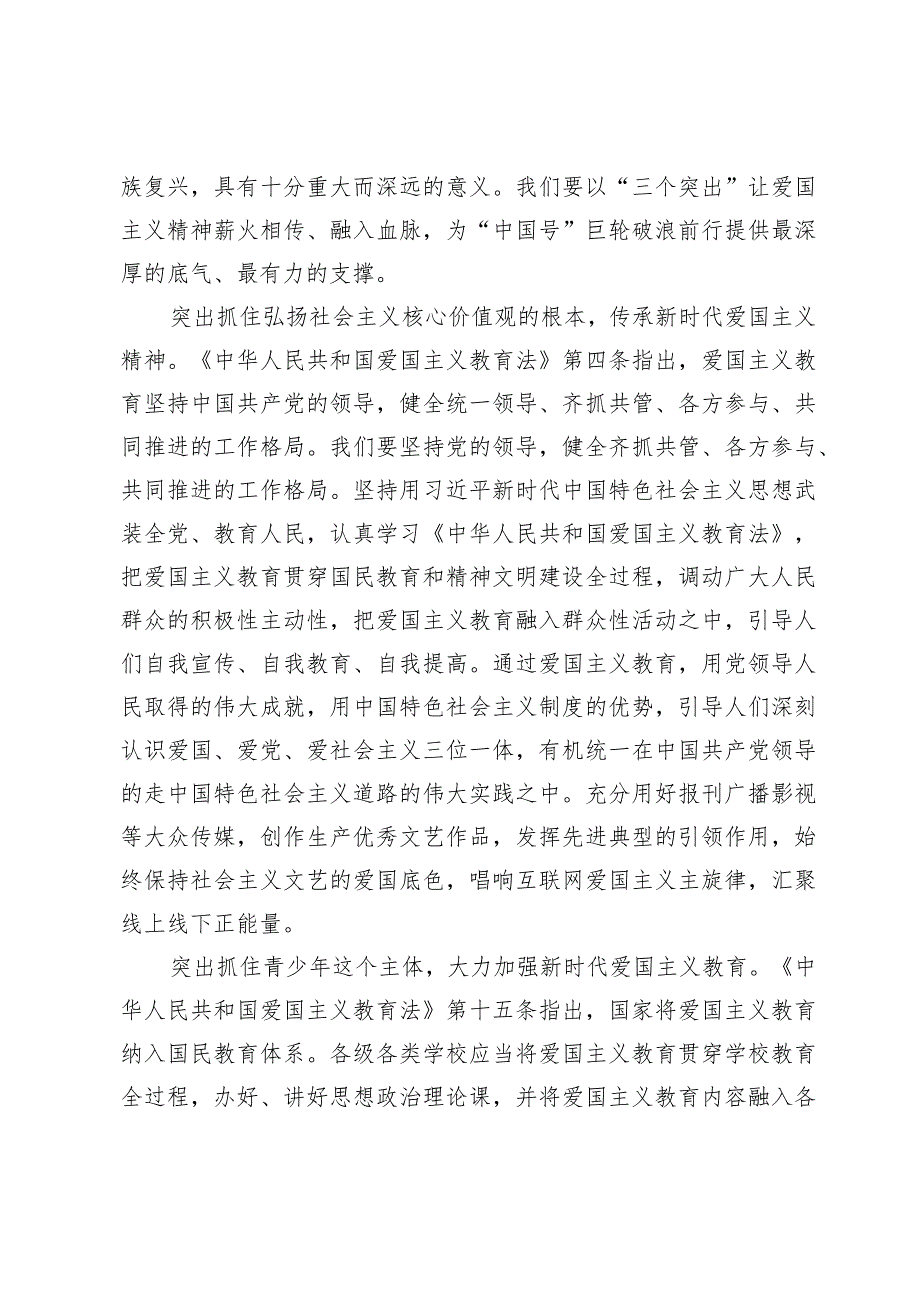 族复兴，具有十分重大而深远的意义。我们要以“三个突出”让爱国
主义精神薪火相传、融入血脉，为“中国号”巨轮破浪前行提供最深
厚的底气、最有力的支撑。
突出抓住弘扬社会主义核心价值观的根本，传承新时代爱国主义
精神。《中华人民共和国爱国主义教育法》第四条指出，爱国主义教
育坚持中国共产党的领导，健全统一领导、齐抓共管、各方参与、共
同推进的工作格局。我们要坚持党的领导，健全齐抓共管、各方参与、
共同推进的工作格局。坚持用习近平新时代中国特色社会主义思想武
装全党、教育人民，认真学习《中华人民共和国爱国主义教育法》，
把爱国主义教育贯穿国民教育和精神文明建设全过程，调动广大人民
群众的积极性主动性，把爱国主义教育融入群众性活动之中，引导人
们自我宣传、自我教育、自我提高。通过爱国主义教育，用党领导人
民取得的伟大成就，用中国特色社会主义制度的优势，引导人们深刻
认识爱国、爱党、爱社会主义三位一体，有机统一在中国共产党领导
的走中国特色社会主义道路的伟大实践之中。充分用好报刊广播影视
等大众传媒，创作生产优秀文艺作品，发挥先进典型的引领作用，始
终保持社会主义文艺的爱国底色，唱响互联网爱国主义主旋律，汇聚
线上线下正能量。
突出抓住青少年这个主体，大力加强新时代爱国主义教育。《中
华人民共和国爱国主义教育法》第十五条指出，国家将爱国主义教育
纳入国民教育体系。各级各类学校应当将爱国主义教育贯穿学校教育
全过程，办好、讲好思想政治理论课，并将爱国主义教育内容融入各